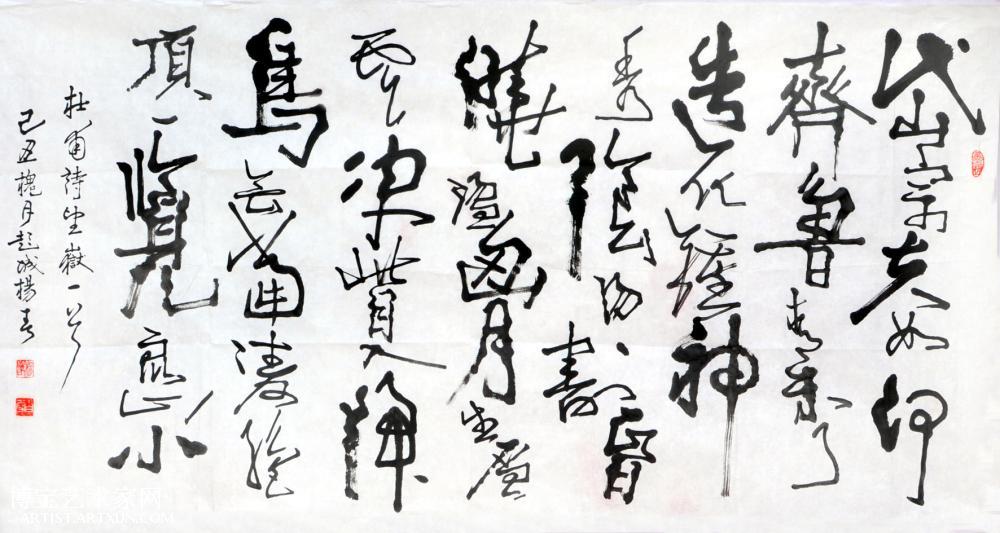 岱宗夫如何
齊魯青未了
造化鍾神
秀陰陽割昏
曉盪胸生層
雲決眥入歸
鳥會當凌絕
頂一覽衆山小
杜甫詩望嶽一首
己丑槐月 城楊春
博宝艺术家网
ARTIST.ARTXUN.COM